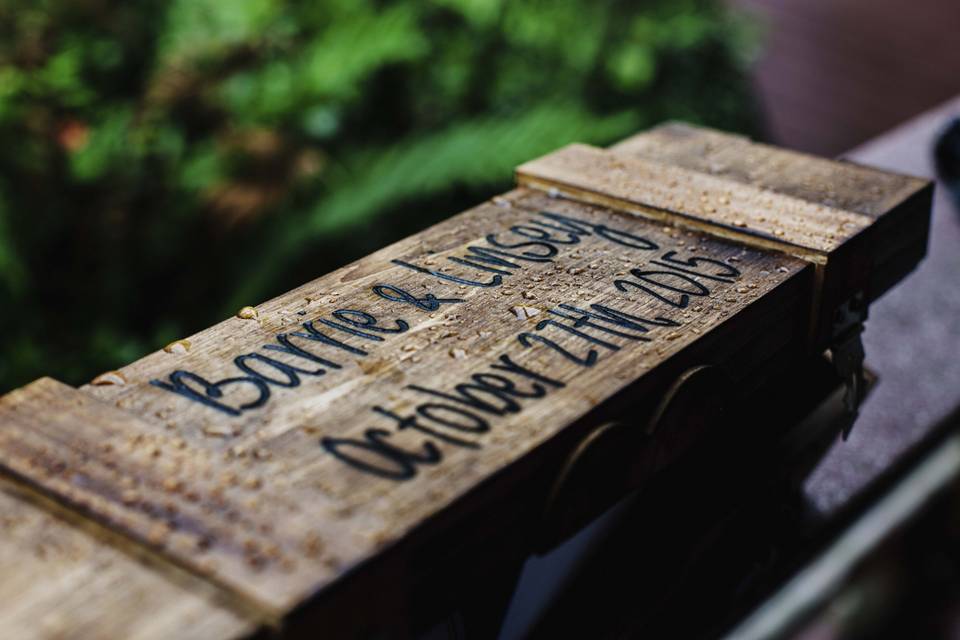 Barrie & Linsey
October 27th, 2015